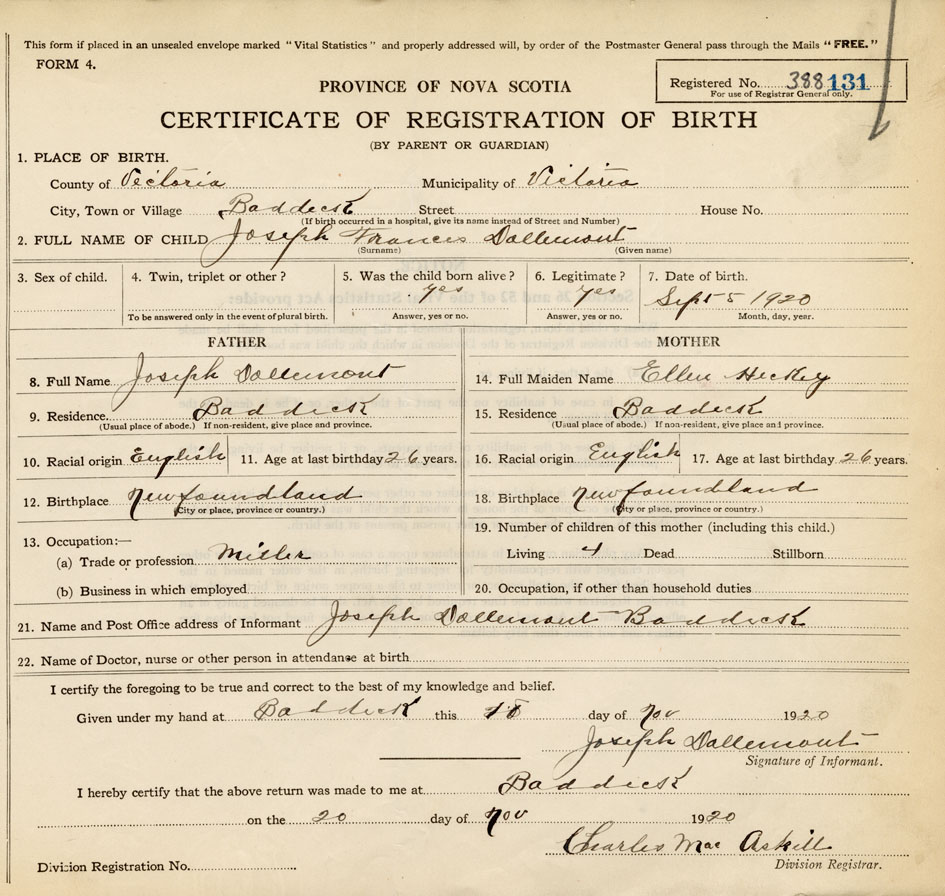 This form if placed in an unsealed envelope marked "Vital Statistics" and properly addressed will, by order of the Postmaster General pass through the Mails "FREE."
FORM 4.
PROVINCE OF NOVA SCOTIA
Registered No. 388 131
For use of Registrar General only.
CERTIFICATE OF REGISTRATION OF BIRTH
(BY PARENT OR GUARDIAN)
1. PLACE OF BIRTH.
County of Victoria Municipality of Victoria
City, Town or Village Baddeck Street House No.
(If birth occurred in a hospital, give its name instead of Street and Number)
2. FULL NAME OF CHILD Joseph Francis Dollemont
(Surname) (Given name)
3. Sex of child. 4. Twin, triplet or other? 5. Was the child born alive? 6. Legitimate? 7. Date of birth.
yes yes Sept 5 1920
To be answered only in the event of plural birth. Answer, yes or no. Answer, yes or no. Month, day, year.
FATHER MOTHER
8. Full Name Joseph Dollemont 14. Full Maiden Name Ellen Heckey
9. Residence. Baddeck 15. Residence Baddeck
(Usual place of abode.) If non-resident, give place and province. (Usual place of abode.) If non-resident, give place and province.
10. Racial origin English 11. Age at last birthday 26 years. 16. Racial origin English 17. Age at last birthday 26 years.
12. Birthplace Newfoundland 18. Birthplace Newfoundland
(City or place, province or country.) (City or place, province or country.)
13. Occupation:— 19. Number of children of this mother (including this child.)
(a) Trade or profession. Miller Living 4 Dead Stillborn
(b) Business in which employed 20. Occupation, if other than household duties
21. Name and Post Office address of Informant Joseph Dollemont Baddeck
22. Name of Doctor, nurse or other person in attendance at birth
I certify the foregoing to be true and correct to the best of my knowledge and belief.
Given under my hand at Baddeck this 18 day of Nov 1920
Joseph Dollemont
Signature of Informant.
I hereby certify that the above return was made to me at Baddeck
on the 20 day of Nov 1920
Charles Mac Askill
Division Registration No. Division Registrar.